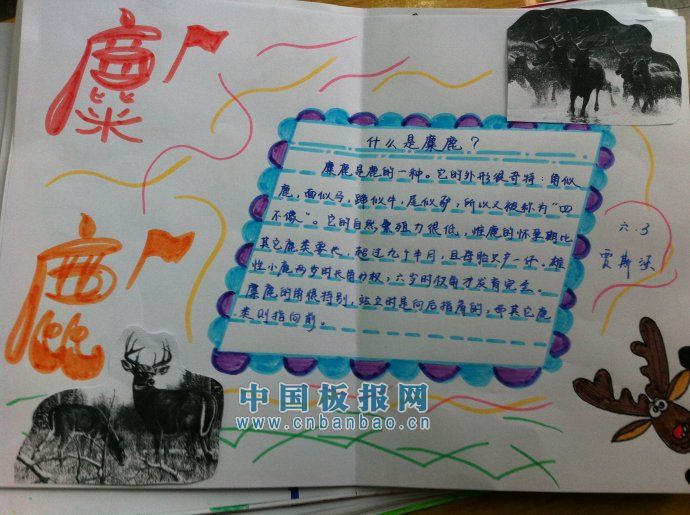 麋
鹿
什么是麋鹿？
麋鹿是鹿的一种。它的外形很奇特：角似
鹿，面似马，蹄似牛，尾似驴，所以又被称为“四
不像”。它的自然繁殖力很低，雌鹿的怀孕期比
其它鹿类要长，超过九个半月，且每胎只产一仔。雄
性小鹿两岁时长角分杈，六岁时杈角才发育完全。
麋鹿的角很特别，站立时是向后指着的，而其它鹿
类则指向前。
六.3
贾斯
中国板报网
www.cnbanbao.cn